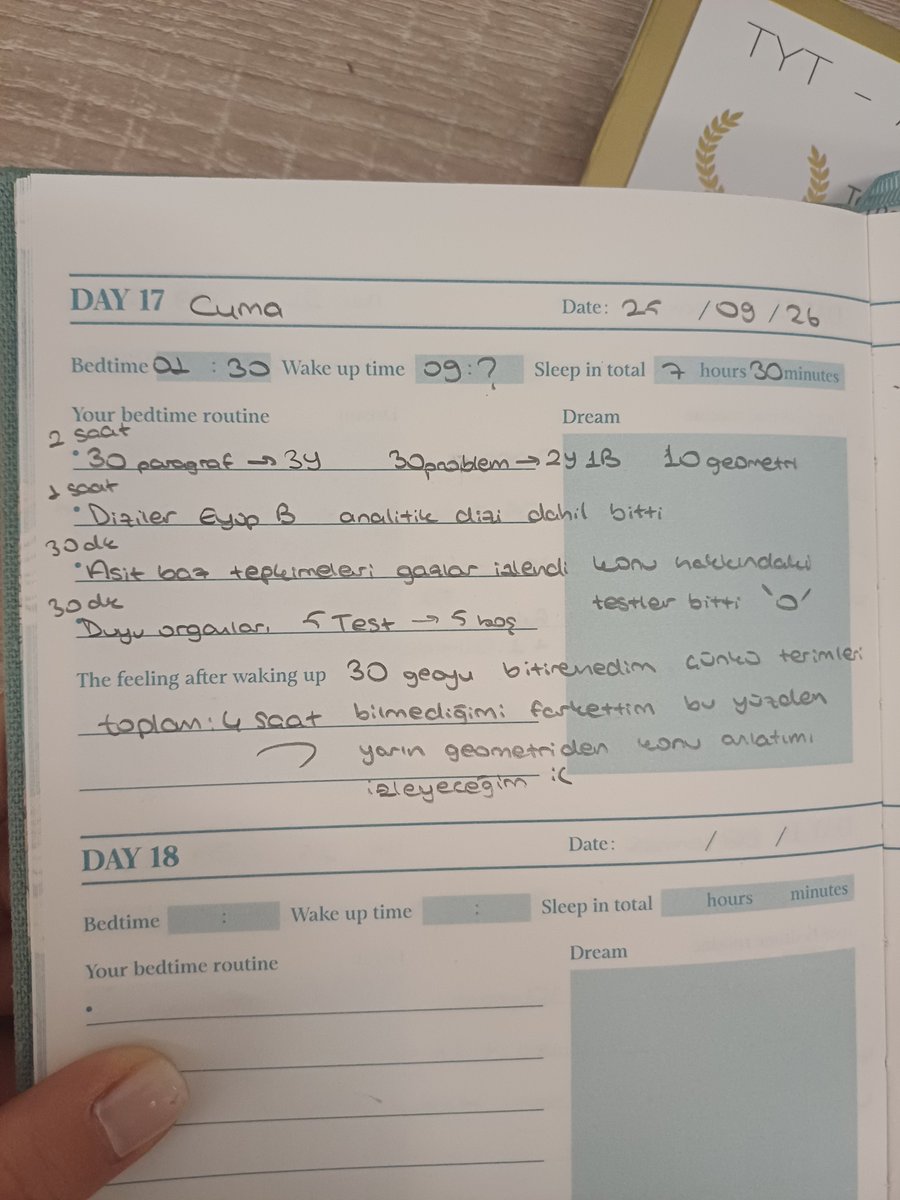 TYT -
DAY 17 Cuma Date: 25 /09/26
Bedtime 01 : 30 Wake up time 09:? Sleep in total 7 hours 30 minutes
Your bedtime routine Dream
2 saat
• 30 paragraf → 3Y 30 problem → 2Y 1B 10 geometri
1 saat
• Diziler Eyüp B analitik dizi dahil bitti
30 dk
• Asit baz tepkimeleri gazlar izlendi konu hakkındaki
testler bitti 'o'
30 dk
• Duyu organları 5 Test → 5 boş
The feeling after waking up 30 geoyu bitiremedim çünkü terimleri
toplam: 4 saat bilmediğimi farkettim bu yüzden
yarın geometriden konu anlatımı
izleyeceğim :(
DAY 18 Date: / /
Bedtime : Wake up time : Sleep in total hours minutes
Your bedtime routine Dream
•